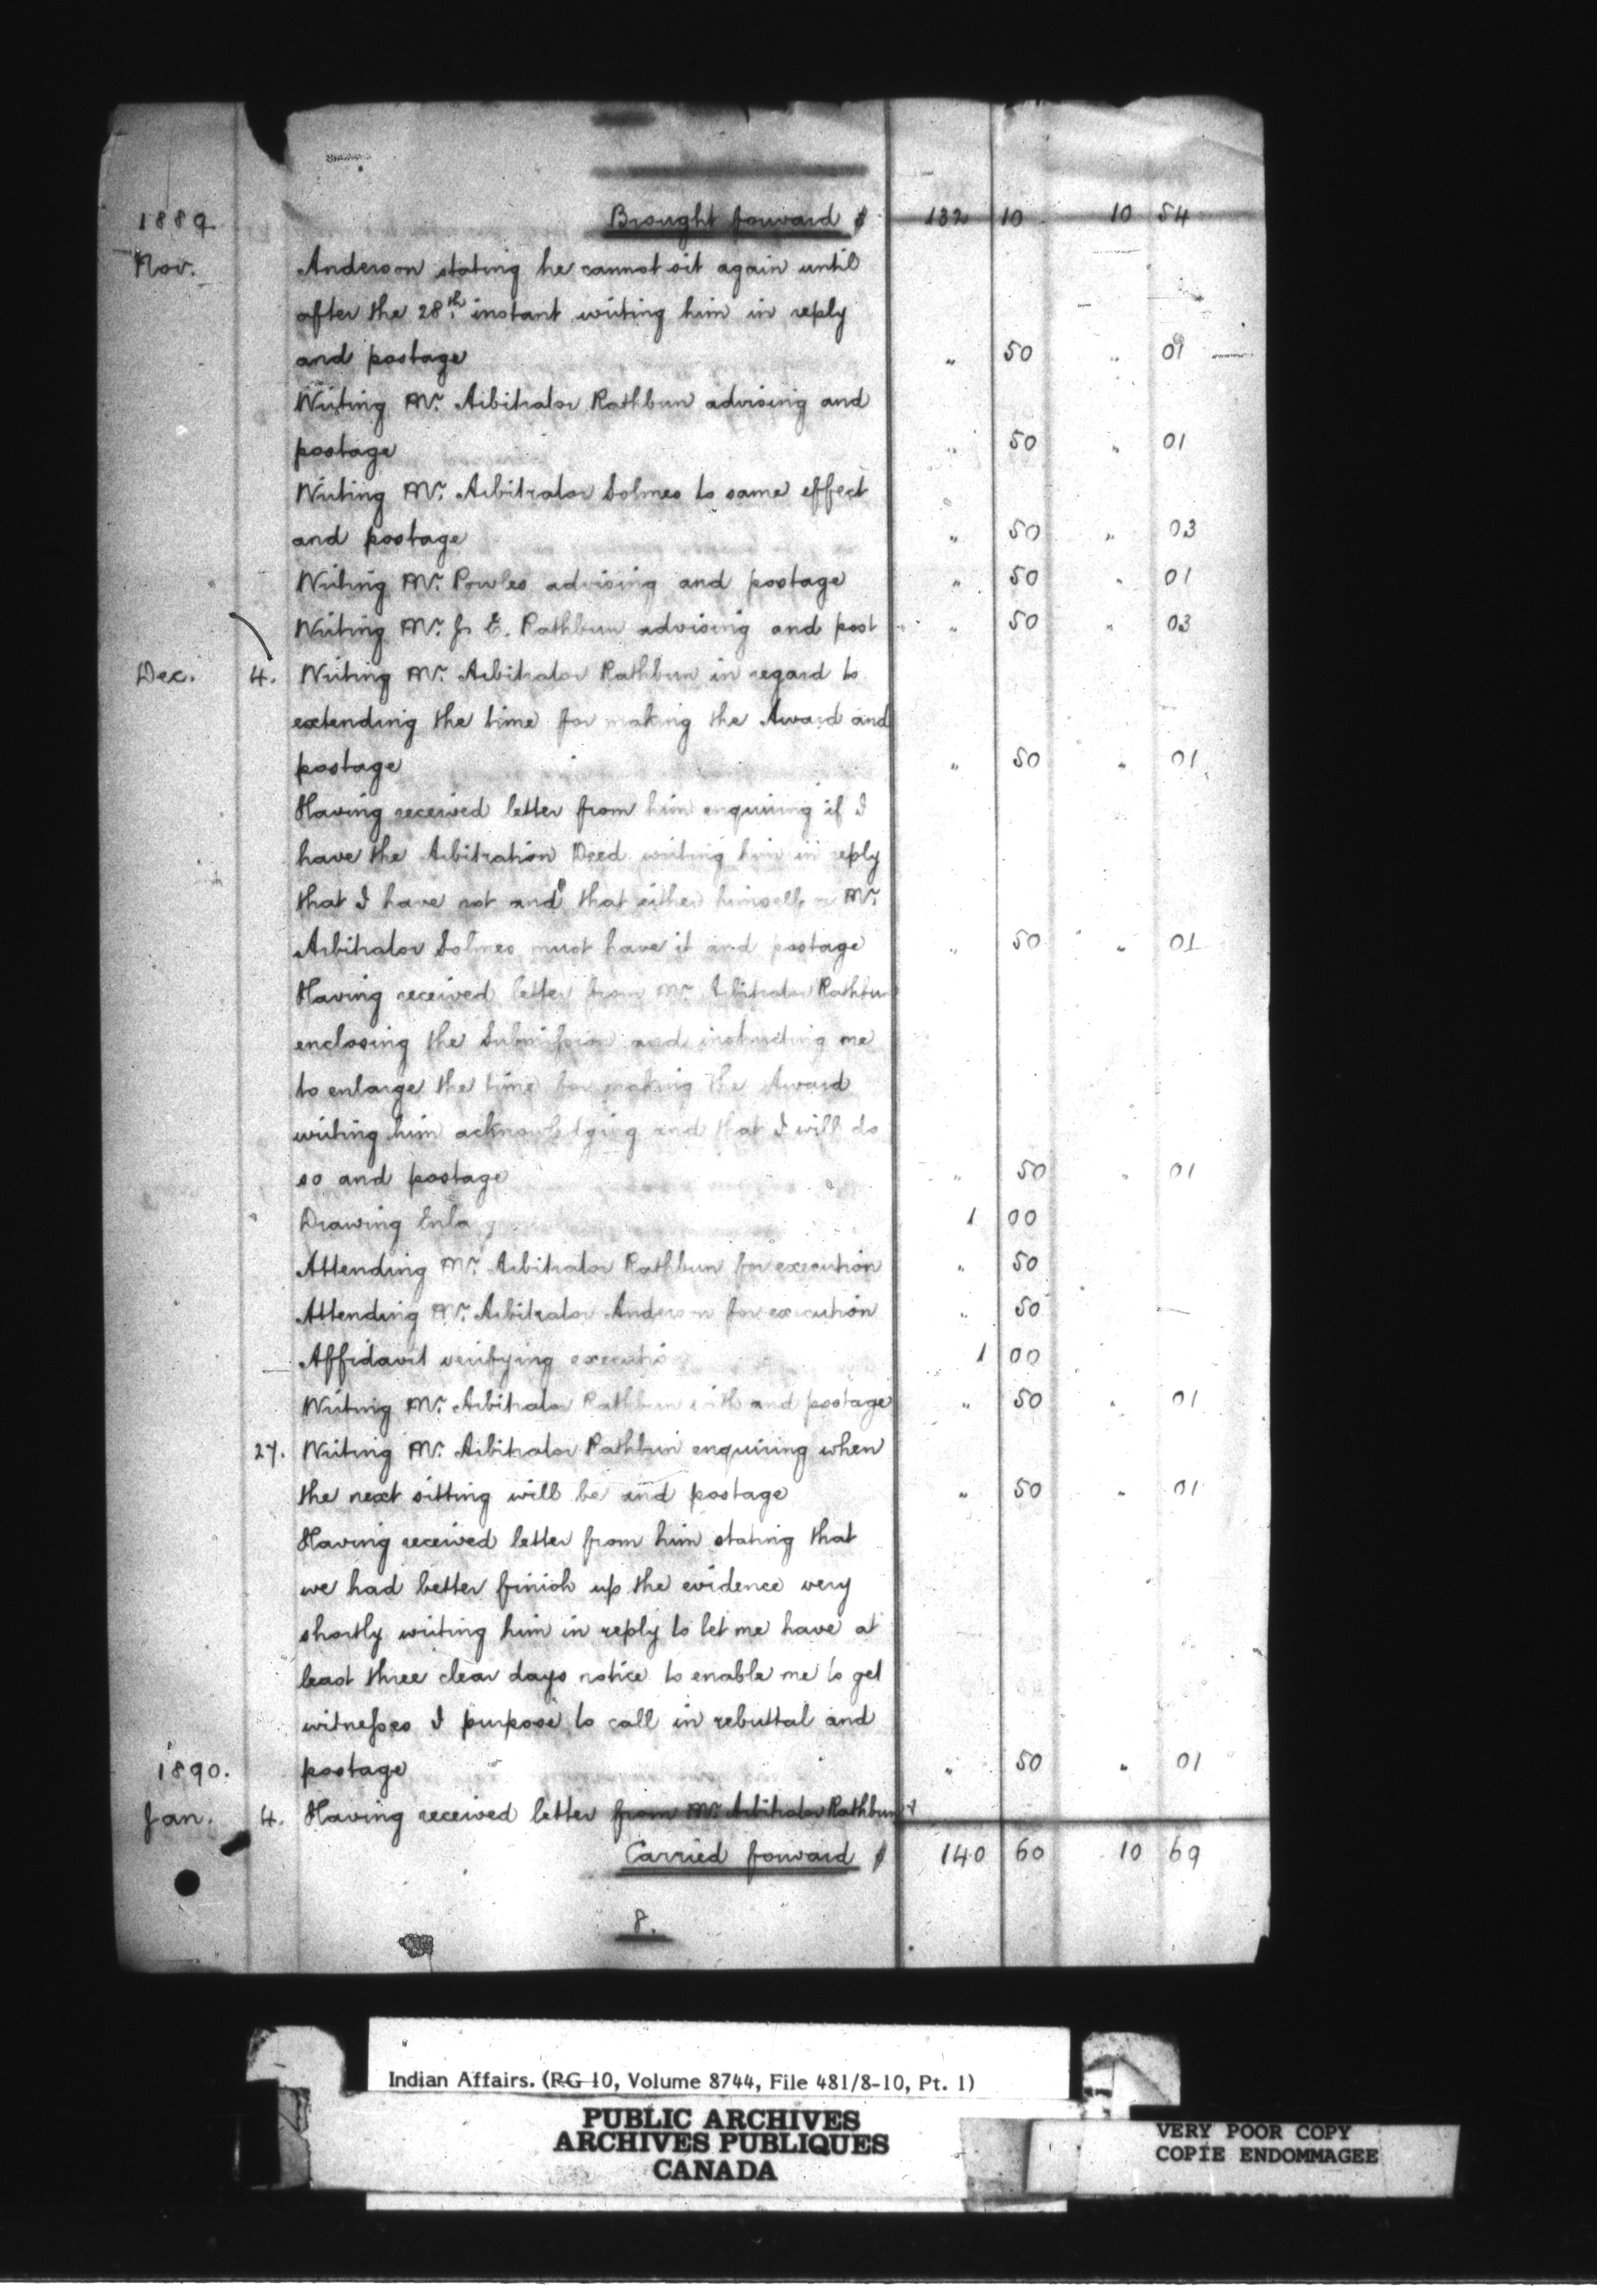 1889 Brought forward $ 132 10 10 54
Nov. Anderson stating he cannot sit again until
after the 28th instant writing him in reply
and postage " 50 " 01
Writing Mr. Arbitrator Rathbun advising and
postage " 50 " 01
Writing Mr. Arbitrator Solmes to same effect
and postage " 50 " 03
Writing Mr. Powles advising and postage " 50 " 01
Writing Mr. E. Rathbun advising and post " 50 " 03
Dec. 4. Writing Mr. Arbitrator Rathbun in regard to
extending the time for making the Award and
postage " 50 " 01
Having received letter from him enquiring if I
have the Arbitration Deed writing him in reply
that I have not and that either himself or Mr.
Arbitrator Solmes must have it and postage " 50 " 01
Having received letter from Mr. Arbitrator Rathbun
enclosing the Submission and instructing me
to enlarge the time for making the Award
writing him acknowledging and that I will do
so and postage " 50 " 01
Drawing 1 00
Attending Mr. Arbitrator Rathbun for execution " 50
Attending Mr. Arbitrator Anderson for execution " 50
Affidavit verifying execution 1 00
Writing Mr. Arbitrator Rathbun with and postage " 50 " 01
27. Writing Mr. Arbitrator Rathbun enquiring when
the next sitting will be and postage " 50 " 01
Having received letter from him stating that
we had better finish up the evidence very
shortly writing him in reply to let me have at
least three clear days notice to enable me to get
witnesses I purpose to call in rebuttal and
1890. postage " 50 " 01
Jan. 4. Having received letter from Mr. Arbitrator Rathbun
Carried forward $ 140 60 10 69
8.
Indian Affairs. (RG 10, Volume 8744, File 481/8-10, Pt. 1)
PUBLIC ARCHIVES
ARCHIVES PUBLIQUES
CANADA
VERY POOR COPY
COPIE ENDOMMAGEE